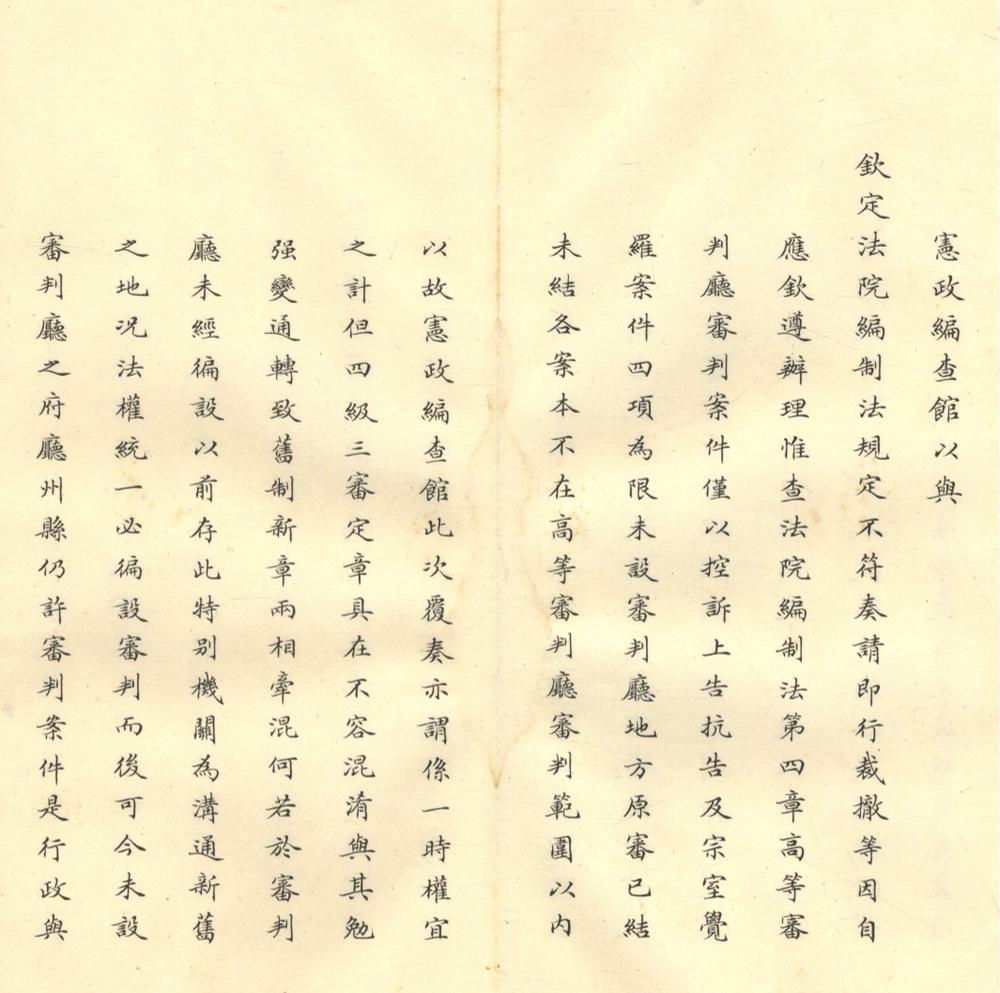 憲政編查館以與
欽定法院編制法規定不符奏請即行裁撤等因自
應欽遵辦理惟查法院編制法第四章高等審
判廳審判案件僅以控訴上告抗告及宗室覺
羅案件四項為限未設審判廳地方原審已結
未結各案本不在高等審判廳審判範圍以內
以故憲政編查館此次覆奏亦謂係一時權宜
之計但四級三審定章具在不容混淆與其勉
强變通轉致舊制新章兩相牽混何若於審判
廳未經徧設以前存此特别機關為溝通新舊
之地况法權統一必徧設審判而後可今未設
審判廳之府廳州縣仍許審判案件是行政與